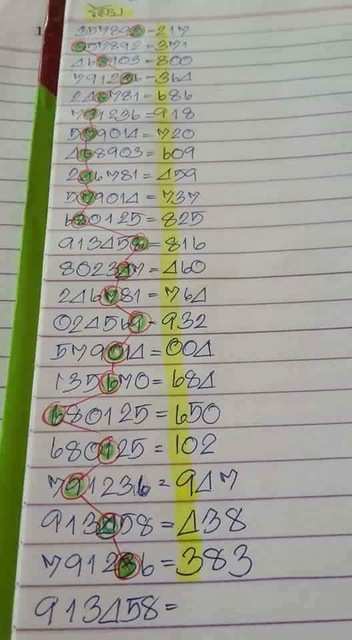 1 357892=217
357892=371
468903=800
791236=364
246781=686
791236=918
579014=720
468903=609
246781=459
579014=737
680125=825
913458=816
802347=460
246781=764
024569=932
579014=004
135670=684
680125=650
680125=102
791236=947
913458=438
791236=383
913458=